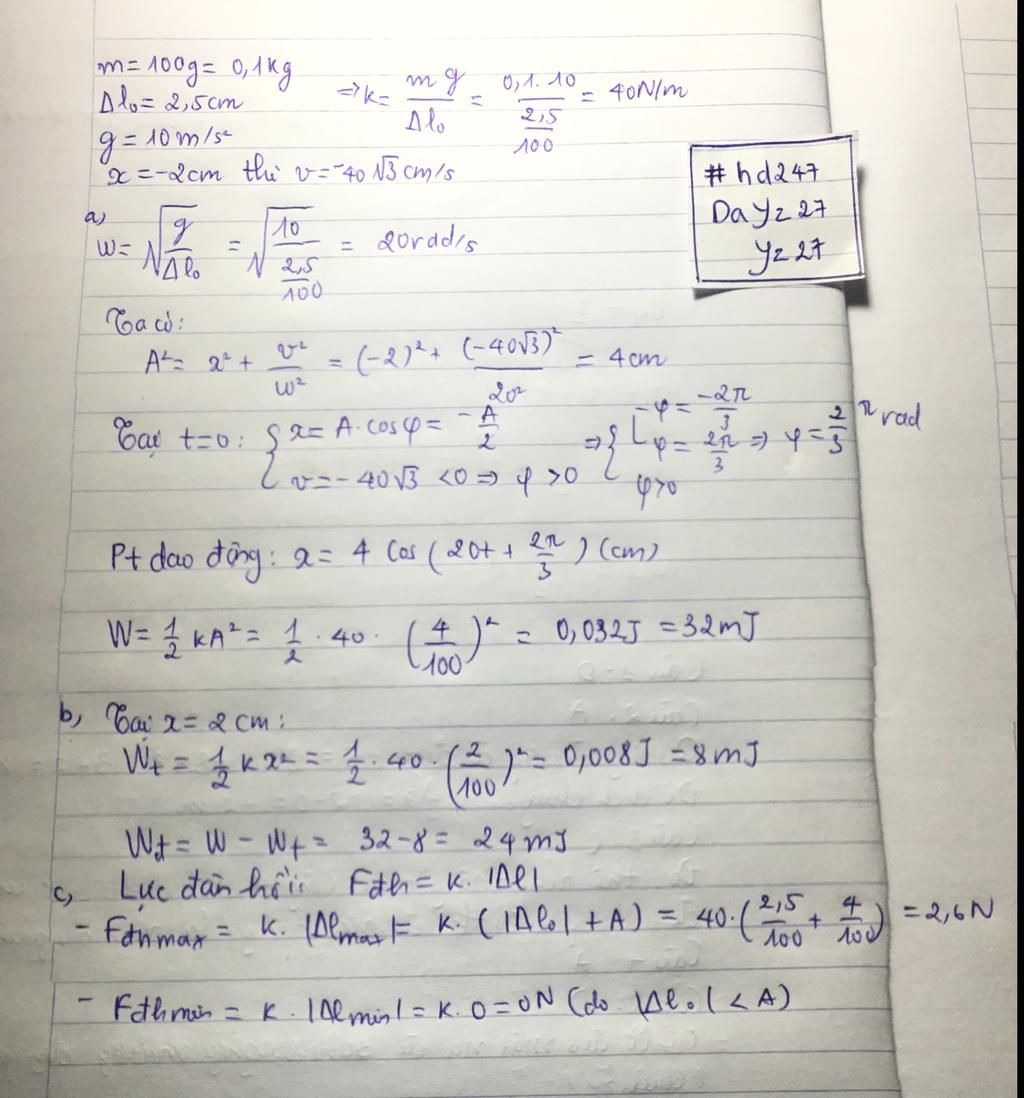 m = 100g = 0,1kg
Δl₀ = 2,5cm ⇒ k = mg/Δl₀ = (0,1.10)/(2,5/100) = 40N/m
g = 10m/s²
x = -2cm thì v = -40√3 cm/s
#hd247
DaYz27
Yz27
a, ω = √(g/Δl₀) = √(10/(2,5/100)) = 20rad/s
Ta có:
A² = x² + v²/ω² = (-2)² + (-40√3)²/20² = 4cm
Tại t=0: { x = A.cosφ = -A/2 ; v = -40√3 <0 ⇒ φ >0 ⇒ { [ φ = -2π/3 ; φ = 2π/3 ; φ>0 ⇒ φ = 2/3 π rad
Pt dao động: x = 4 cos(20t + 2π/3) (cm)
W = 1/2 kA² = 1/2 . 40 . (4/100)² = 0,032J = 32mJ
b, Tại x = 2cm:
Wt = 1/2 kx² = 1/2 . 40 . (2/100)² = 0,008J = 8mJ
Wđ = W - Wt = 32-8 = 24mJ
c, Lực đàn hồi: Fđh = k. |Δl|
- Fđhmax = k. |Δlmax| = k. (|Δl₀| + A) = 40.(2,5/100 + 4/100) = 2,6N
- Fđhmin = k. |Δlmin| = k. 0 = 0N (do |Δl₀| < A)